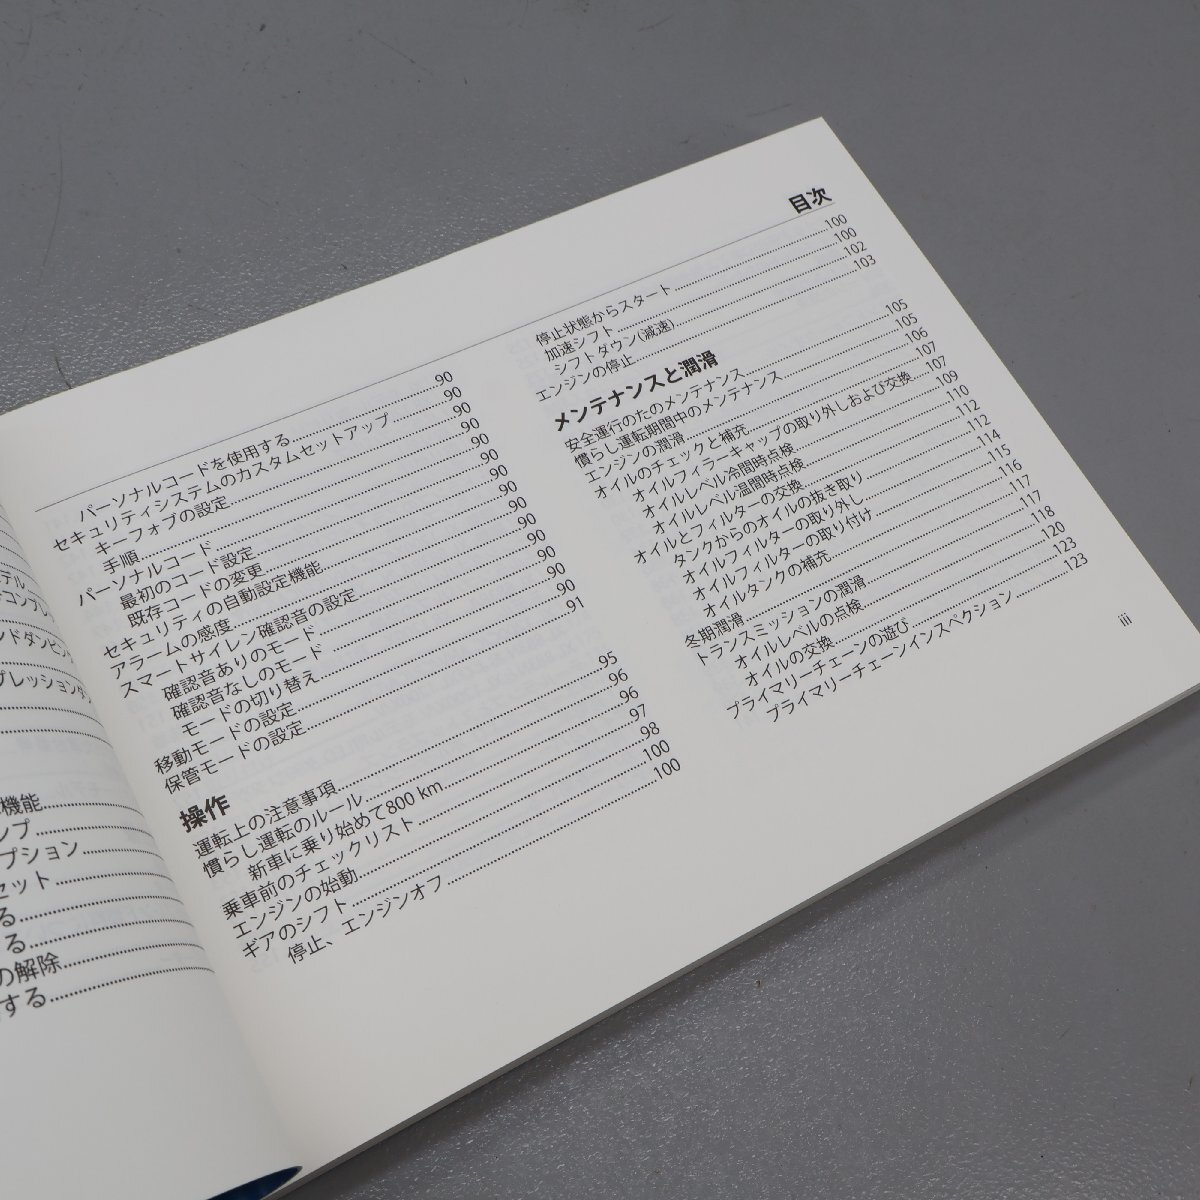 テル
テコンプレ
ンドダンピン
プレッションダ
機能
ンプ
プション
セット
る
る
の解除
する
目次
パーソナルコードを使用する 90
セキュリティシステムのカスタムセットアップ 90
キーフォブの設定 90
手順 90
パーソナルコード 90
最初のコード設定 90
既存コードの変更 90
セキュリティの自動設定機能 90
アラームの感度 90
スマートサイレン確認音の設定 90
確認音ありのモード 90
確認音なしのモード 90
モードの切り替え 90
移動モードの設定 90
保管モードの設定 91
操作
運転上の注意事項 95
慣らし運転のルール 96
新車に乗り始めて800 km 96
乗車前のチェックリスト 97
エンジンの始動 98
ギアのシフト 100
停止、エンジンオフ 100
停止状態からスタート 100
加速シフト 100
シフトダウン(減速) 102
エンジンの停止 103
メンテナンスと潤滑
安全運行のたのメンテナンス 105
慣らし運転期間中のメンテナンス 105
エンジンの潤滑 106
オイルのチェックと補充 107
オイルフィラーキャップの取り外しおよび交換 107
オイルレベル冷間時点検 109
オイルレベル温間時点検 110
オイルとフィルターの交換 112
タンクからのオイルの抜き取り 112
オイルフィルターの取り外し 114
オイルフィルターの取り付け 115
オイルタンクの補充 116
冬期潤滑 117
トランスミッションの潤滑 117
オイルレベルの点検 118
オイルの交換 120
プライマリーチェーンの遊び 123
プライマリーチェーンインスペクション 123
iii